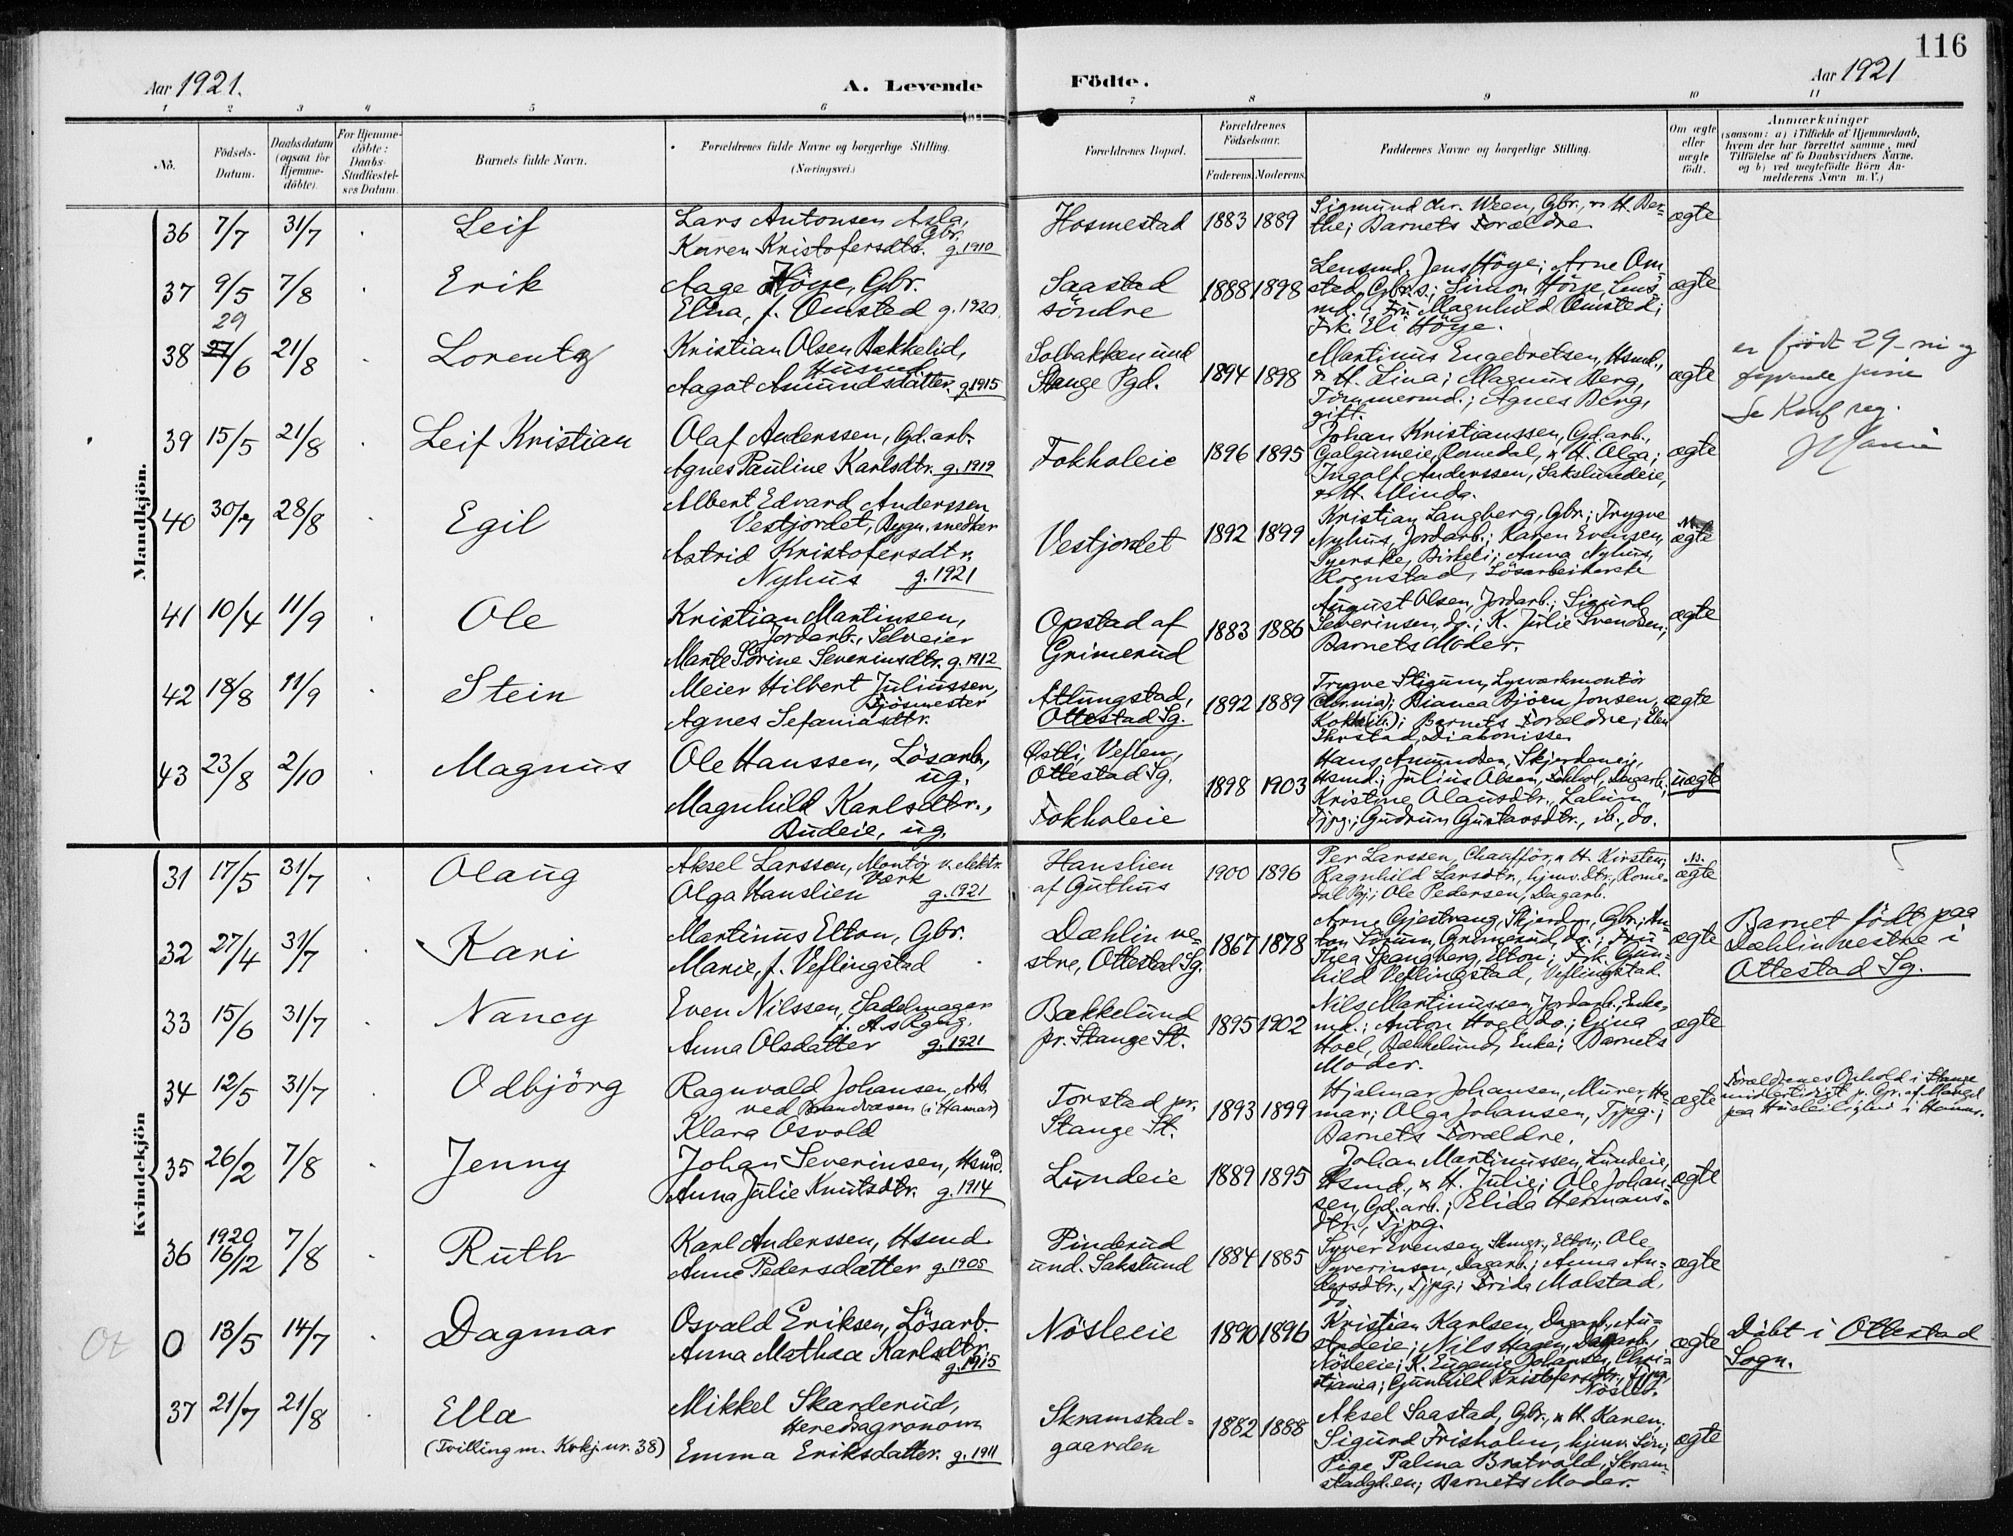 116
Aar 1921. A. Levende Födte. Aar 1921
1 2 3 4 5 6 7 8 9 10 11
No. Födsels-Datum. Daabsdatum (ogsaa for Hjemme-döbte). For Hjemme-döbte: Daabs-Stadfæstel-ses Datum. Barnets fulde Navn. Forældrenes fulde Navne og borgerlige Stilling. (Næringsvei.) Forældrenes Bopæl. Forældrenes Födselsaar. Faderens. Moderens. Faddernes Navne og borgerlige Stilling. Om ægte eller uægte födt. Anmærkninger (saasom: a) i Tilfælde af Hjemmedaab, hvem der har forrettet samme, med Tilföielse af to Daabsvidners Navne, og b) ved uægtefödte Börn An-melderens Navn m. V.)
Mandkjön.
36 7/7 31/7 Leif
Lars Antonsen Asla, Gbr.
Karen Kristofersdtr. g. 1910
Hosmestad 1883 1889
Sigmund Chr. Ween, Gbr., & H. Ber-
the; Barnets Forældre
ægte
37 9/5 7/8 Erik
Aage Höye, Gbr.
Elna, f. Omstad g. 1920.
Saastad
söndre
1888 1898
Lensmd. Jens Höye; Arne Om-
sted, Gbr.s.; Simon Höye, Lens-
md.; Fru Magnhild Omsted;
Frk. Eli Höye.
ægte
38 29 27/6 21/8 Lorentz
Kristian Olsen Bakkelid,
Husmd.
Aagot Amundsdatter. g. 1915
Solbakken und
Stange Pgd.
1894 1898
Martinus Engebretsen, Hsmd.,
& H. Lina; Magnus Berg,
Tömmermd.; Agnes Berg,
gift.
ægte
er födt 29-ni og
tyvende juni
Se Konf reg.
39 15/5 21/8 Leif Kristian
Olaf Anderssen, Gd.arb.
Agnes Pauline Karlsdtr. g. 1919
Fokholeie 1896 1895
Johan Kristianssen, Gd.arb.,
Galgumeie, Romedal, & H. Olga;
Ingolf Anderssen, Sakslundeie,
& H. Minda.
ægte
40 30/7 28/8 Egil
Albert Edvard Anderssen
Vestjordet, Bygn. snedker
Astrid Kristofersdtr.
Nyhus g. 1921
Vestjordet 1892 1899
Kristian Langberg, Gbr.; Trygve
Nyhus, Jordarb.; Karen Evensen,
Syerske, Birkeli; Anna Nyhus,
Rognstad, Lösarbeiderske
ægte
41 10/4 11/9 Ole
Kristian Martinsen,
Jordarb., Selveier
Marte Sörine Severinsdtr. g. 1912
Opstad af
Grimerud
1883 1886
August Olsen, Jordarb.; Sigurd
Severinsen, do.; K. Julie Svendsen;
Barnets Moder.
ægte
42 18/8 11/9 Stein
Meier Hilbert Juliussen,
Fjösmester
Agnes Sefaniasdtr.
Atlungstad,
Ottestad Sg.
1892 1889
Trygve Stigum, Lysværkmontör
Bianca Björn Jonsen,
Barnets Forældre;
Diakonisse
ægte
43 23/8 2/10 Magnus
Ole Hanssen, Lösarb.,
ug.
Magnhild Karlsdtr.,
Budeie, ug.
Østli, Veflen,
Ottestad Sg.
Fokholeie
1898 1903
Hans Amundsen, Skjerdeneie,
Hsmd.; Julius Olsen, Fokhol, Dagarb.;
Kristine Olausdtr., Lalum,
Tjpg.; Gudrun Gustavsdtr., ib., do.
uægte
Kvindekjön
31 17/5 31/7 Olaug
Aksel Larssen, Montör v. elektr.
Værk
Olga Hanslien g. 1921
Hanslien
af Guthus
1900 1896
Per Larssen, Chaufför, & H. Kirsten;
Ragnhild Larsdtr., hjmv. dtr., Rome-
dal Pgj.; Ole Pedersen, Dagarb.
ægte
32 27/4 31/7 Kari
Martinus Elton, Gbr.
Marie, f. Veflingstad
Dæhlin ve-
stre, Ottestad Sg.
1867 1878
Arne Gjestvang, Skjerden, Gbr.; An-
ton Sörum, Grimerud, do.; Fru
Thea Spangberg, Elton; Frk. Gun-
hild Veflingstad, Veflingstad.
ægte
Barnet födt paa
Dæhlin vestre i
Ottestad Sg.
33 15/6 31/7 Nancy
Even Nilssen, Sadelmager
Anna Olsdatter g. 1921
Bækkelund
pr. Stange St.
1895 1902
Nils Martinussen, Jordarb., Enke-
md.; Anton Hoel, do.; Gina
Hoel, Bækkelund, Enke; Barnets
Moder.
ægte
34 12/5 31/7 Odbjörg
Ragnvald Johansen, Arb.
ved Brandvæsen (i Hamar)
Klara Osvold
Torstad pr.
Stange St.
1893 1899
Hjalmar Johansen, Murer, Ha-
mar; Olga Johansen, Tjpg.;
Barnets Forældre.
ægte
Forældrenes Ophold i Stange
midlertidigt p. Gr. af Mangel
paa Husleilighed i Hamar.
35 26/2 7/8 Jenny
Johan Severinsen, Hsmd.
Anna Julie Knutsdtr. g. 1914
Lundeie 1889 1895
Johan Martinussen, Lundeie,
Hsmd., & H. Julie; Ole Johan-
sen, Gd.arb.; Elida Hermans-
dtr., Tjpg.
ægte
36 1920 16/12 7/8 Ruth
Karl Anderssen, Hsmd.
Anne Pedersdatter g. 1908
Pinderud
und. Sakslund
1884 1885
Syver Evensen, Elton; Ole
Syverinsen, Dagarb.; Anna An-
dersdtr., Tjpg.; Frida Molstad,
do.
ægte
Ot 0 13/5 14/7 Dagmar
Osvald Eriksen, Lösarb.
Anna Mathea Karlsdtr.
g. 1915
Nösleeie 1890 1896
Kristian Karlsen, Dagarb., Au-
stadeie; Nils Hagen, Dagarb.,
Nösleeie; K. Eugenie Johansen, Chri-
stiania; Gunhild Kristofersdtr., Tjpg.,
Nösle.
ægte
Döbt i Ottestad
Sogn.
37 21/7 21/8 Ella
(Tvilling m. Kvkj. nr. 38)
Mikkel Skarderud,
Heredsagronom
Emma Eriksdatter. g. 1911
Skramstad-
gaarden
1882 1888
Aksel Saastad, Gbr., & H. Karen;
Sigurd Frisholm, hjmv. Sön;
Pige Palma Bratvold, Skram-
stadgd.en; Barnets Moder.
ægte